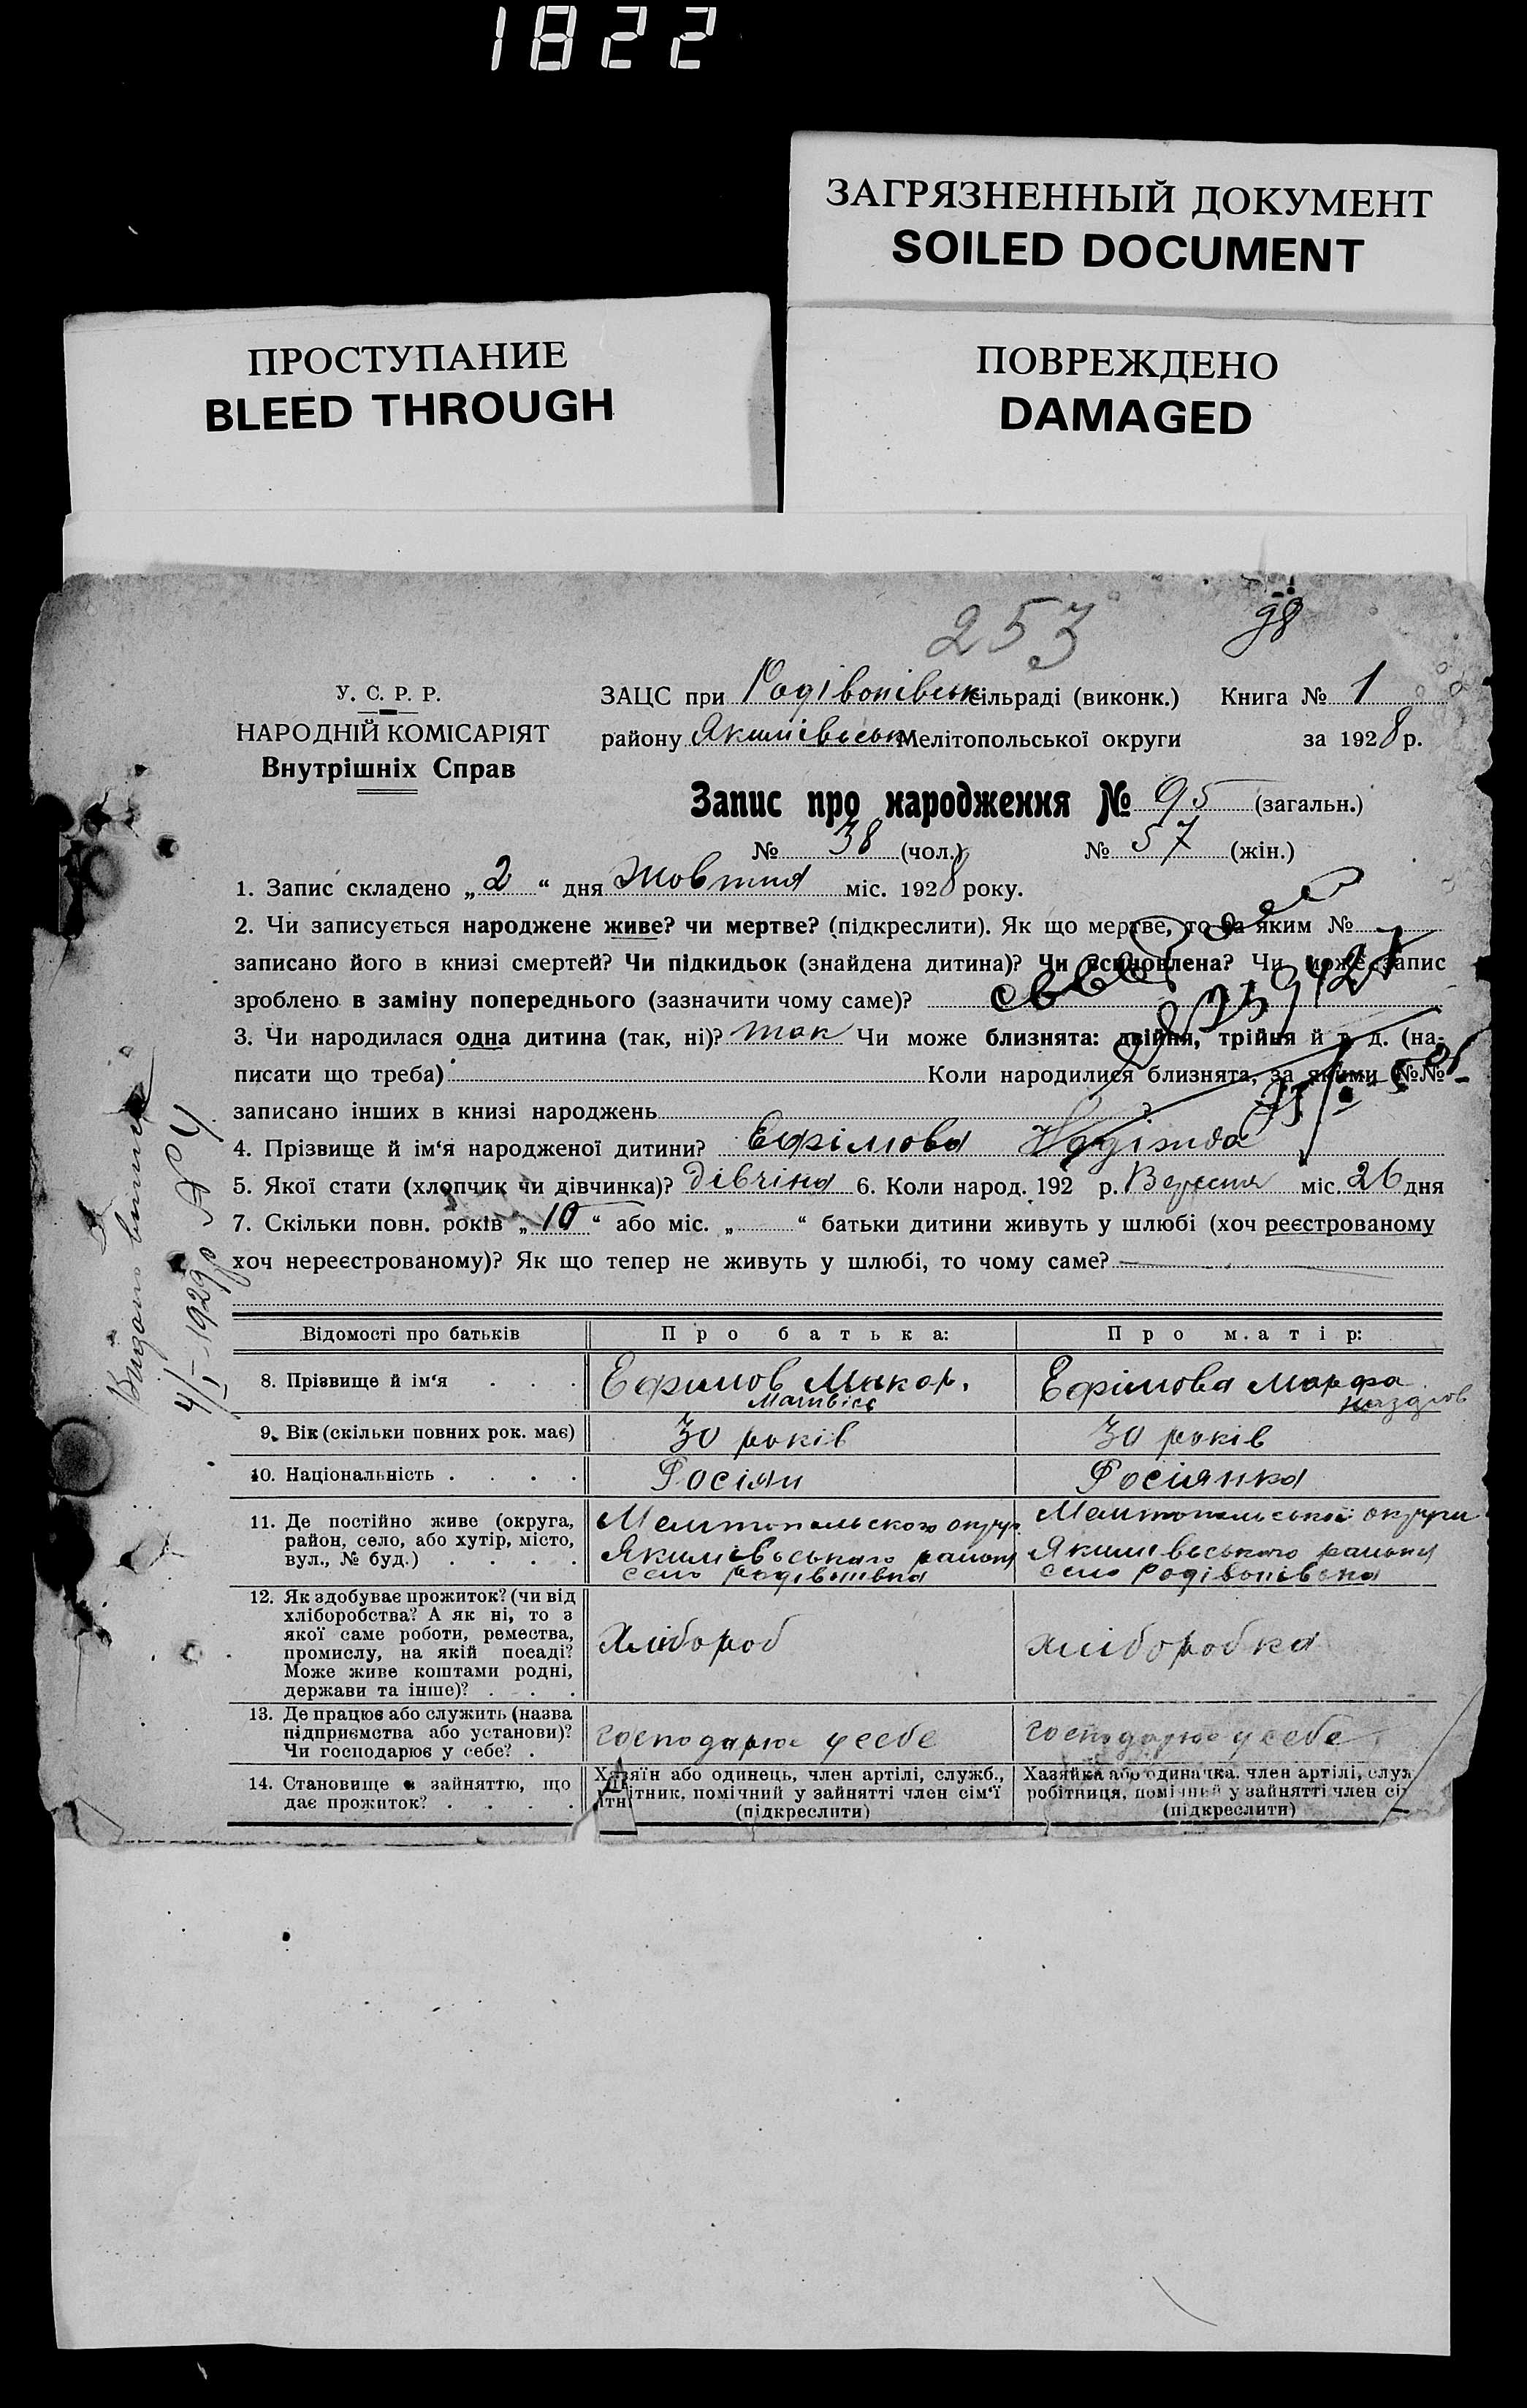 1822
ЗАГРЯЗНЕННЫЙ ДОКУМЕНТ
SOILED DOCUMENT
ПРОСТУПАНИЕ
BLEED THROUGH
ПОВРЕЖДЕНО
DAMAGED
253 98
У. С. Р. Р.
НАРОДНІЙ КОМІСАРІЯТ
Внутрішніх Справ
ЗАЦС при Родівонівськ сільраді (виконк.) Книга № 1
району Якимівськ Мелітопольської округи за 1928 р.
Запис про народження № 95 (загальн.)
№ 38 (чол.) № 57 (жін.)
1. Запис складено „2“ дня Жовтня міс. 1928 року.
2. Чи записується народжене живе? чи мертве? (підкреслити). Як що мертве, то за яким №
записано його в книзі смертей? Чи підкидьок (знайдена дитина)? Чи всиновлена? Чи може запис
зроблено в заміну попереднього (зазначити чому саме)?
3. Чи народилася одна дитина (так, ні)? так Чи може близнята: двійня, трійня й т. д. (на-
писати що треба) Коли народилися близнята, за якими №№
записано інших в книзі народжень ?
4. Прізвище й ім‘я народженої дитини? Ефімова Надіжда
5. Якої стати (хлопчик чи дівчинка)? дівчіна 6. Коли народ. 192 р. Вересня міс. 26 дня
7. Скільки повн. років „10“ або міс. „ “ батьки дитини живуть у шлюбі (хоч реєстрованому
хоч нереєстрованому)? Як що тепер не живуть у шлюбі, то чому саме? —
4/I-1929 р № 4
Відомості про батьків
Про батька:
Про матір:
8. Прізвище й ім‘я . . .
Ефимов Макар.
Матвіє
Ефімова Марфа
9. Вік (скільки повних рок. має)
30 років
30 років
10. Національність . . . .
Росіян
Росіянка
11. Де постійно живе (округа,
район, село, або хутір, місто,
вул., № буд.) . . . .
Мелитопольского округ
Якимівського району
село Родівонівка
Мелитопольської округи
Якимівського району
село Родівонівка
12. Як здобуває прожиток? (чи від
хліборобства? А як ні, то з
якої саме роботи, ремества,
промислу, на якій посаді?
Може живе коштами родні,
держави та інше)? . . .
Хлібороб
хліборобка
13. Де працює або служить (назва
підприємства або установи)?
Чи господарює у себе? .
господарює у себе
господарює у себе
14. Становище в зайняттю, що
дає прожиток? . . . .
Хазяїн або одинець, член артілі, служб.,
ітник, помічний у зайнятті член сім‘ї
(підкреслити)
Хазяйка або одиначка, член артілі, служ
робітниця, помічний у зайнятті член сі
(підкреслити)